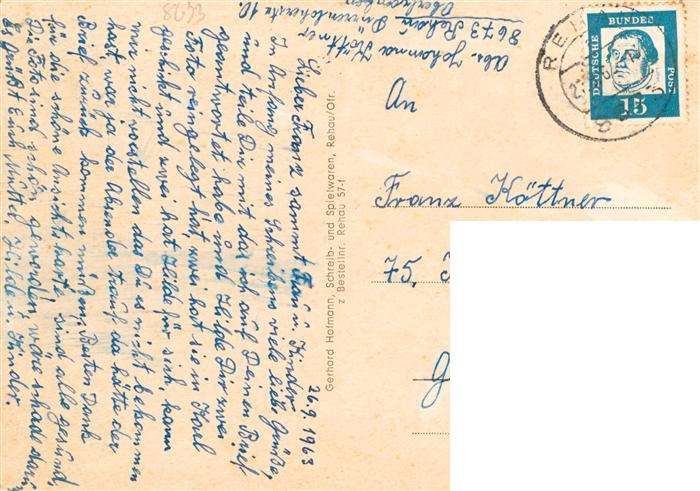 3428
Abs. Johanna Köttner
8673 Rehau
Oberfranken
26.9.1963
Lieber Franz sammt Frau u. Kinder
In Anfang meines Schreibens viele liebe Grüße,
und teile Dir mit das ich auf Deinen Brief
geantwortet habe und Hilde Dir zwei
Foto reingelegt hat, zwei hat sie in Karl
geschickt und zwei hat Hilde für sich, kann
mir nicht vorstellen das Du es nicht bekommen
hast, war ja der Absender drauf da hätte der
Brief zurück kommen müßen. Besten Dank
für die schön Ansichtskarte sind alle gesund,
Die Foto sind schön geworden, wäre schade darum
Es grüßt Euch Mutter, Hilde u. Kinder.
Gerhard Hofmann, Schreib- und Spielwaren, Rehau/Ofr.
z Bestellnr. Rehau 57-f
DEUTSCHE
BUNDES
POST
15
RE
An
Franz Köttner
75,